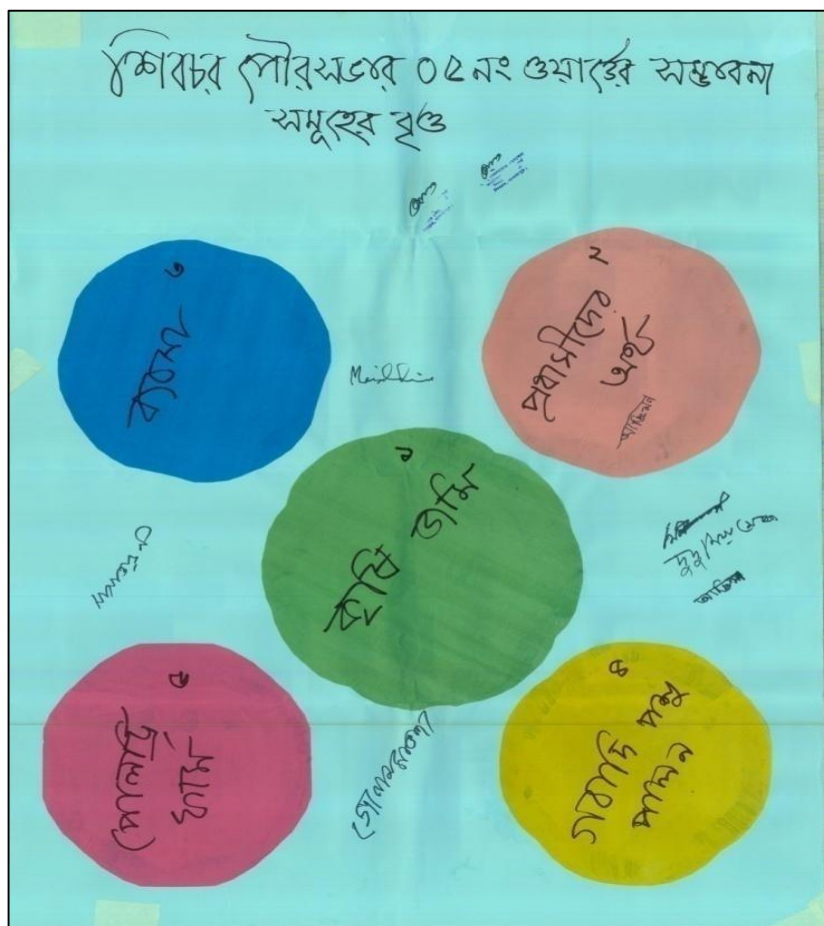 শিবচর পৌরসভার ০৫নং ওয়ার্ডের সম্ভাবনা
সমূহের বৃত্ত
৩
ব্যবসা
২
প্রবাসীদের
অর্থ
১
কৃষি জমি
৫
পোলট্রি
ফার্ম
৪
গবাদি পশু
পালন